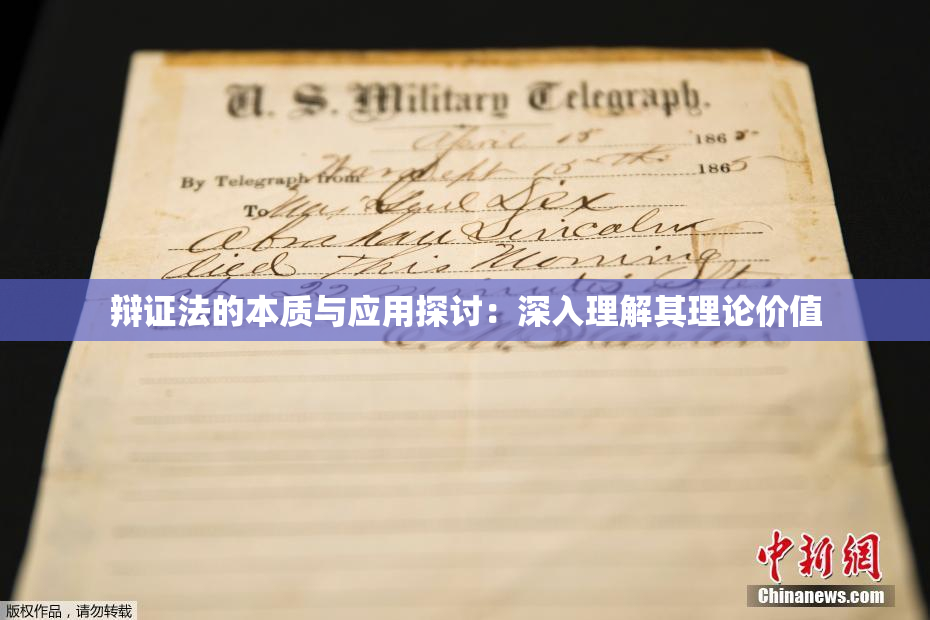 U. S. Military Telegraph.
April 15 1865
By Telegraph from War Dept 15th 1865
To Maj Genl Dix
Abraham Lincoln
died This Morning
at 22 minutes after
辩证法的本质与应用探讨：深入理解其理论价值
E. M. Stanton
中新网
Chinanews.com
版权作品，请勿转载